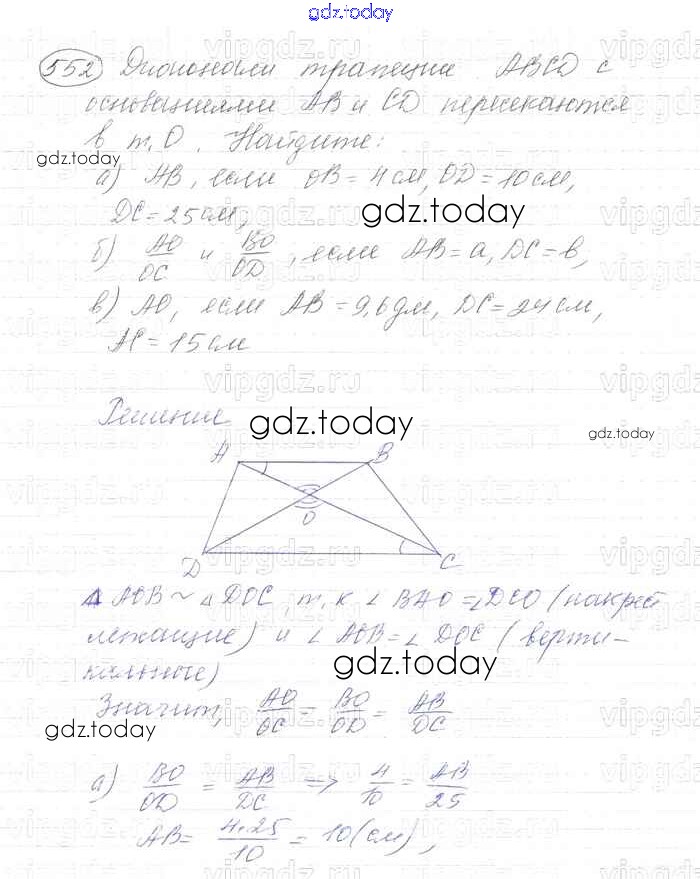 gdz.today
552 Диагонали трапеции ABCD с
основаниями AB и CD пересекаются
в т. O. Найдите:
gdz.today
а) AB, если OB = 4 см, OD = 10 см,
DC = 25 см;
gdz.today
б) AO/OC и BO/OD, если AB = a, DC = b,
в) AO, если AB = 9,6 дм, DC = 24 см,
AC = 15 см
vipgdz.ru
Решение
gdz.today
gdz.today
A B
O
D C
Δ AOB ~ Δ DOC, т.к ∠ BAO = ∠DCO (накрест
лежащие) и ∠ AOB = ∠ DOC (верти-
кальные)
gdz.today
Значит, AO/OC = BO/OD = AB/DC
gdz.today
а) BO/OD = AB/DC => 4/10 = AB/25
AB = 4·25/10 = 10 (см),